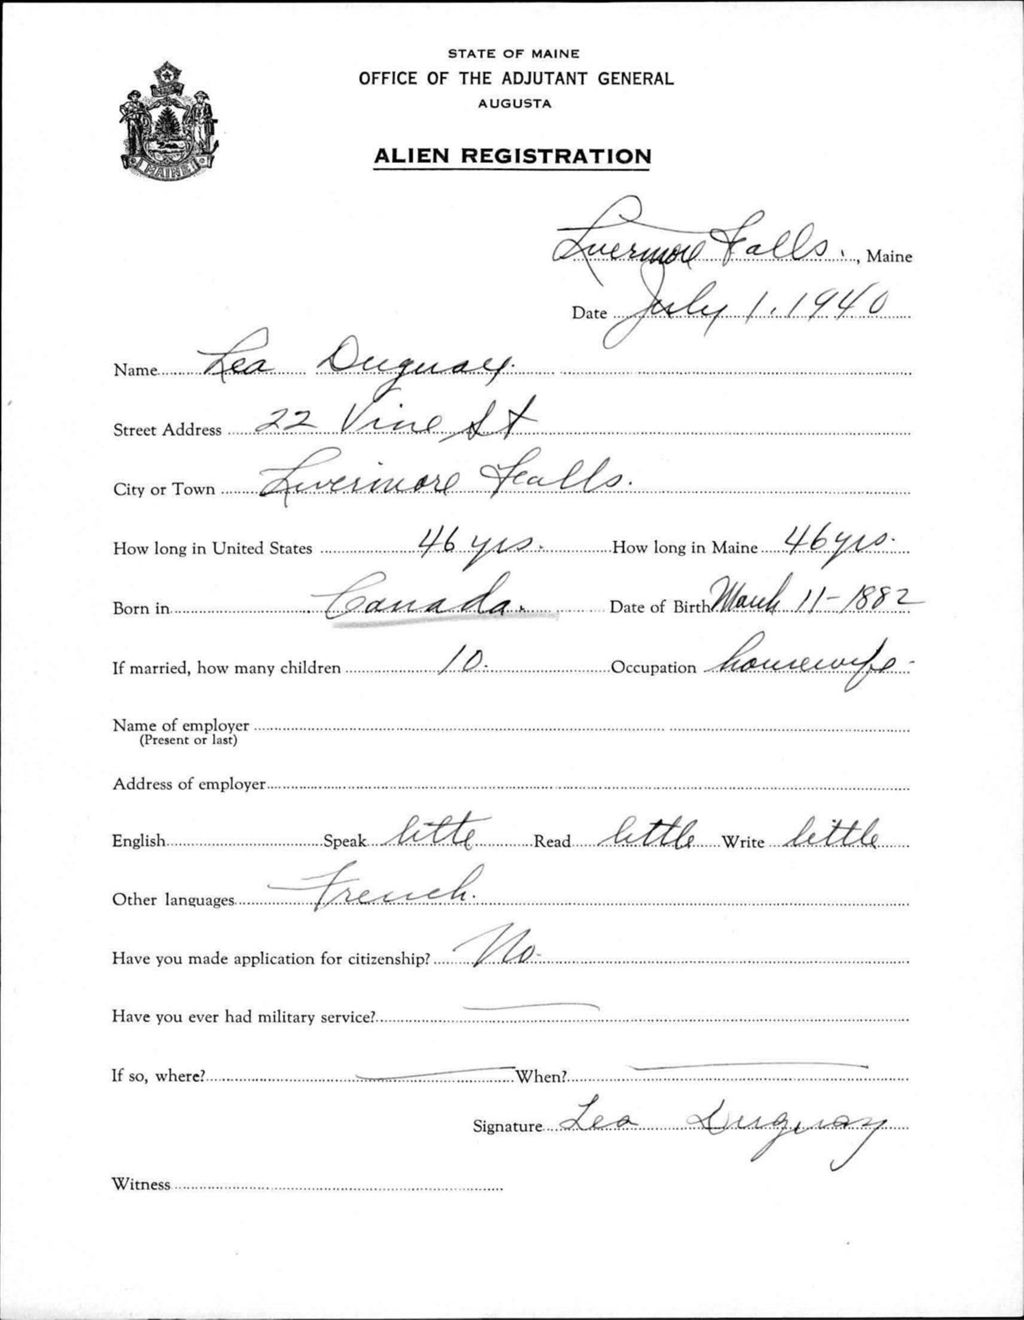 STATE OF MAINE
OFFICE OF THE ADJUTANT GENERAL
AUGUSTA
ALIEN REGISTRATION
MAINE
Livermore Falls., Maine
Date July 1, 1940
Name Lea Duguay.
Street Address 22 Vine St
City or Town Livermore Falls.
How long in United States 46 yrs. How long in Maine 46 yrs.
Born in Canada. Date of Birth March 11-1882
If married, how many children 10. Occupation housewife-
Name of employer
(Present or last)
Address of employer
English Speak litte Read little Write little
Other languages French.
Have you made application for citizenship? No-
Have you ever had military service? —
If so, where? — When? —
Signature Lea Duguay
Witness